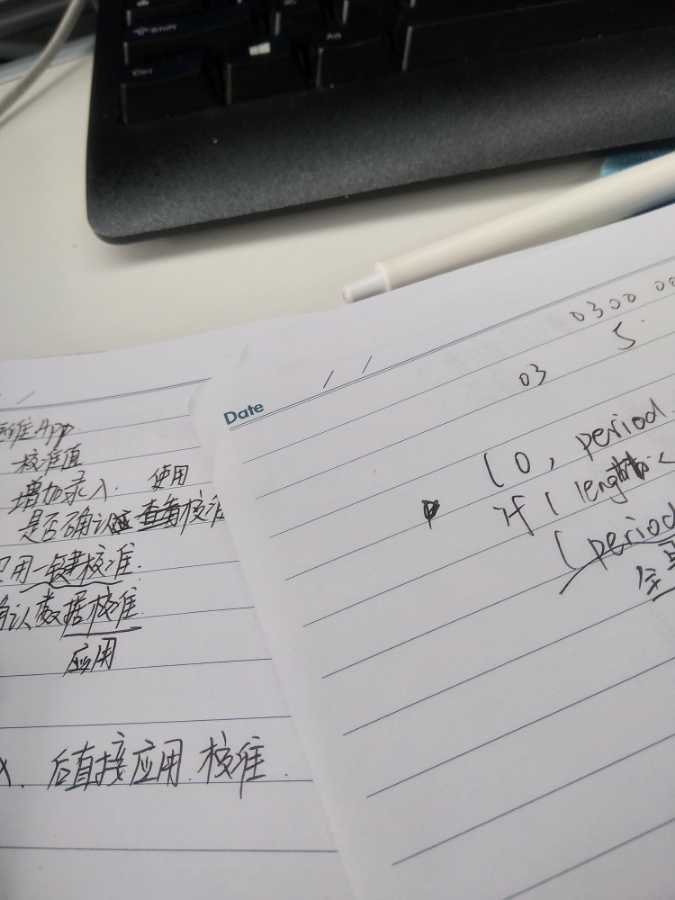 Shift
Ctrl
Alt
运维App
校准值
增加录入. 使用
是否确认 校准
用一键校准.
确认数据校准
应用
后直接应用. 校准.
Date / /
0300 00
03 5.
(0, period,
if ( length <
(period